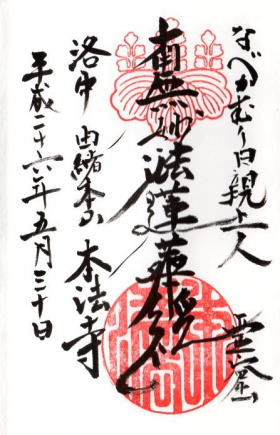 なべかむり日親上人
霊蹟
南無妙法蓮華経
洛中 由緒本山 本法寺
平成二十六年五月三十日